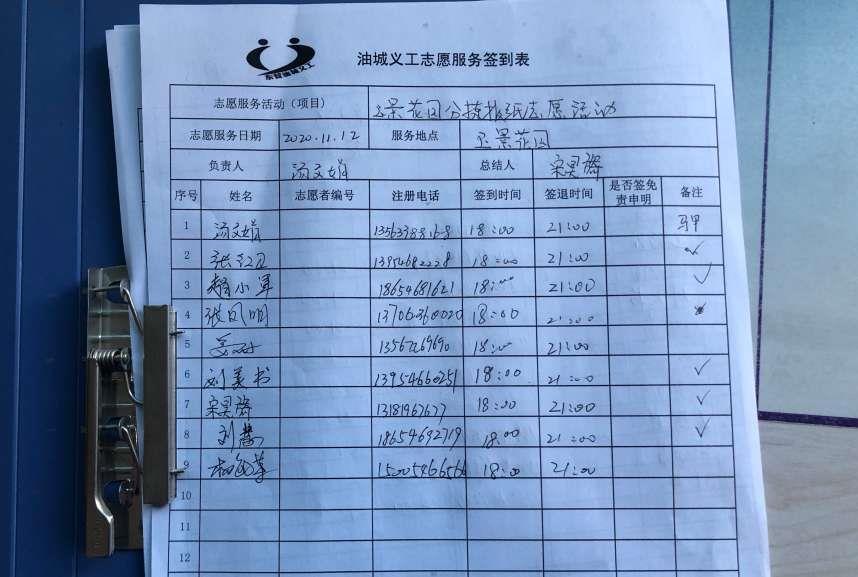 东营油城义工
油城义工志愿服务签到表
志愿服务活动（项目） 玉景花园分拣报纸志愿活动
志愿服务日期 2020.11.12 服务地点 玉景花园
负责人 汤文娟 总结人 宋昊霖
序号 姓名 志愿者编号 注册电话 签到时间 签退时间 是否签免责申明 备注
1 汤文娟 18:00 21:00 马甲
2 张红卫 13954682228 18:00 21:00 ✓
3 小军 18654681621 18:00 21:00 ✓
4 张凤明 18:00 21:00
5 18:00 21:00
6 刘美书 13954660251 18:00 21:00 ✓
7 宋昊霖 13181967677 18:00 21:00 ✓
8 刘慧 18654692719 18:00 21:00 ✓
9 15005466566 18:00 21:00
10
11
12